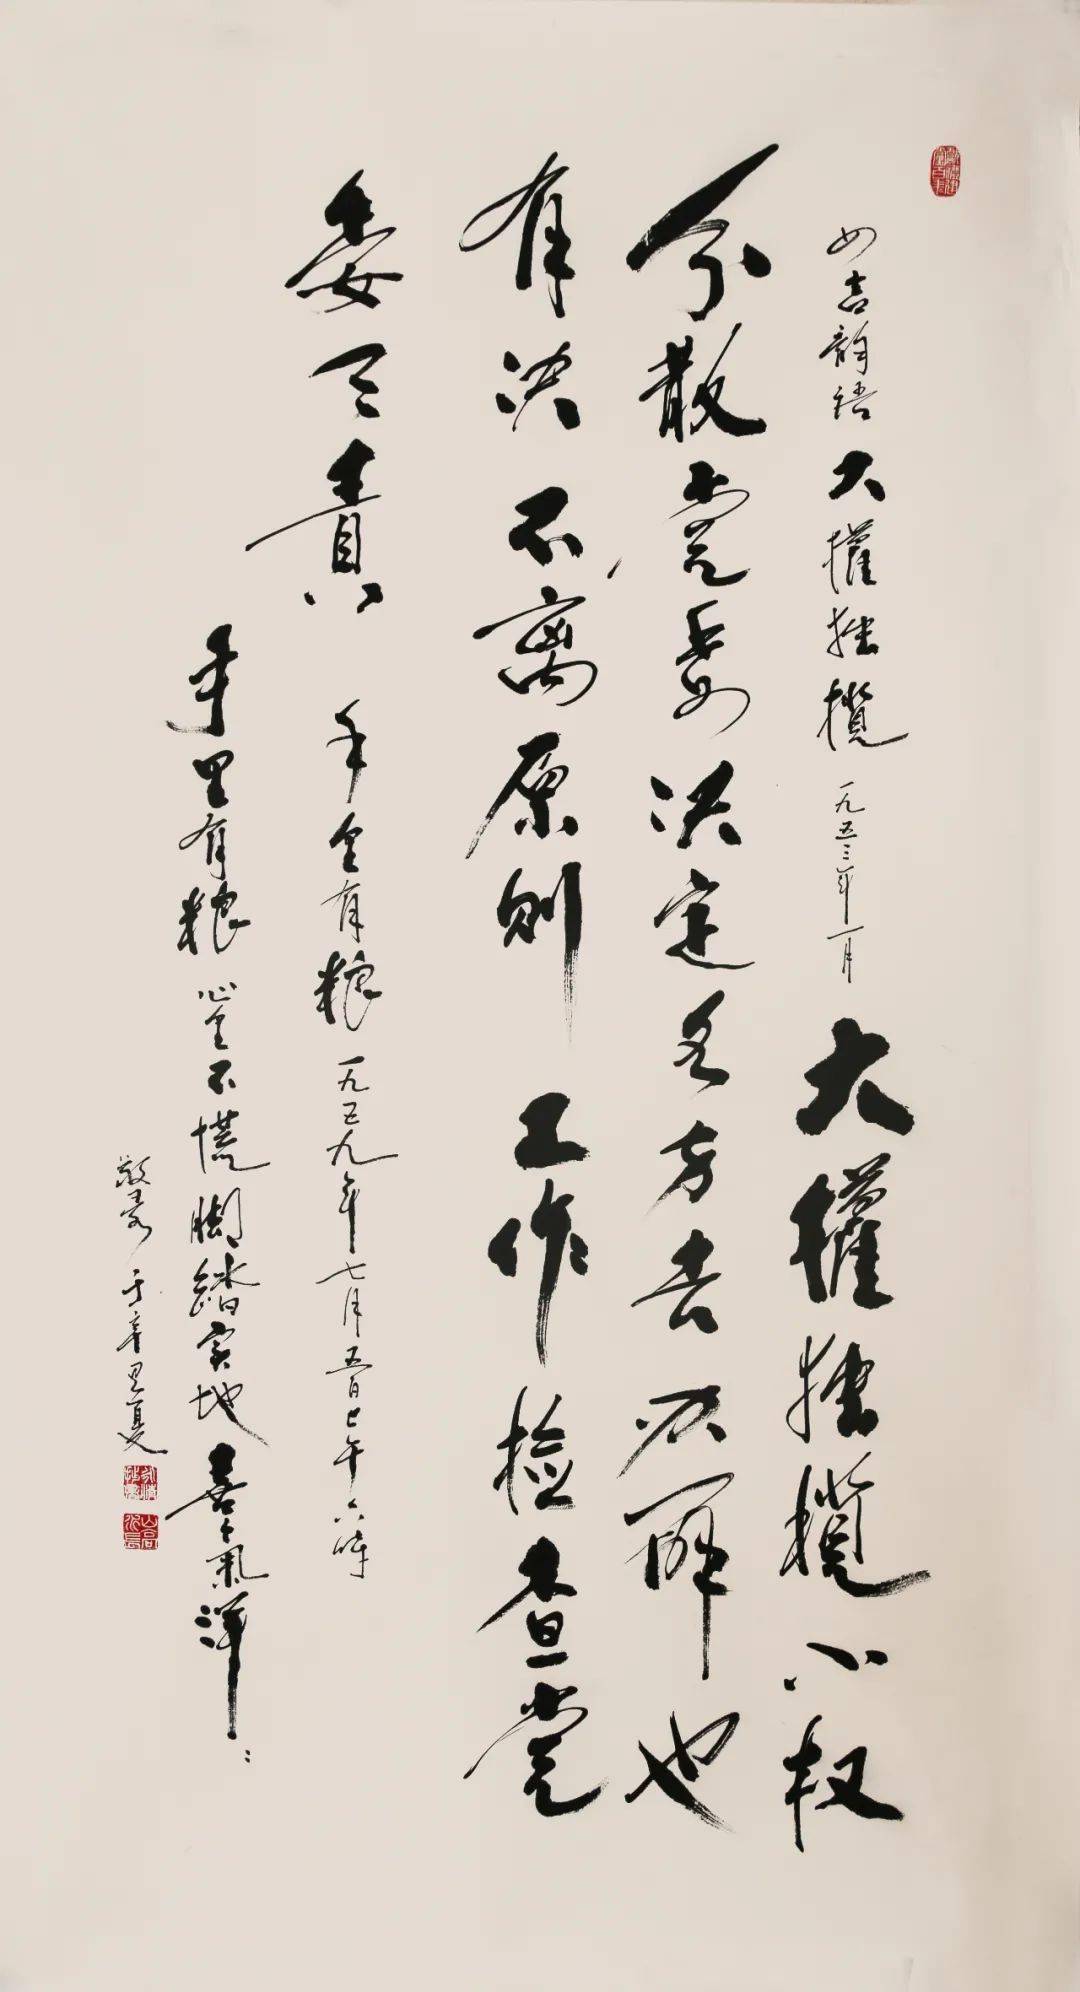 四言韵语 大权独揽 一九五三年一月 大权独揽 小权
分散 党委决定 各方去 办 办 也
有决 不离原则 工作检查 党
委有责
手里有粮 一九五九年七月五日上午六时
手里有粮 心里不慌 脚踏实地 喜气洋:
敬录 于辛丑夏
山高水长